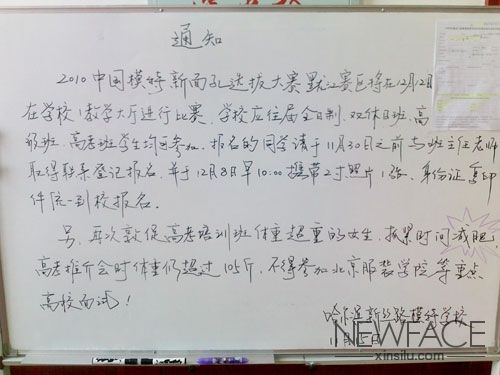 通知
2010中国模特新面孔选拔大赛黑龙江赛区将在12月12日
在学校1教学大厅进行比赛，学校应往届全日制、双休日班、高
级班、高考班学生均可参加。报名的同学请于11月30日之前与班主任老师
取得联系登记报名，并于12月8日早10:00携带2寸照片1张、身份证复印
件统一到校报名。
另，再次敦促高考培训班体重超重的女生，抓紧时间减肥，
高考推介会时体重仍超过105斤，不得参加北京服装学院等重点
高校面试！
哈尔滨新丝路模特学校
11月15日
NEWFACE
xinsilu.com